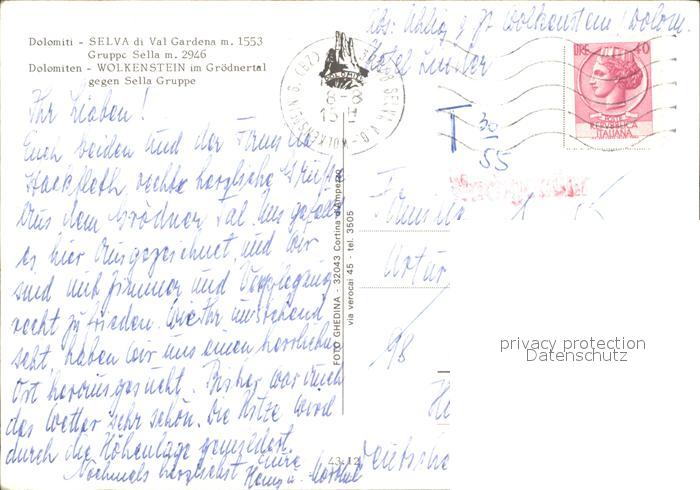 Dolomiti - SELVA di Val Gardena m. 1553
Gruppo Sella m. 2946
Dolomiten - WOLKENSTEIN im Grödnertal
gegen Sella Gruppe
Ihr Lieben!
Euch beiden und der Familie
recht herzliche Grüße
aus dem Grödner Tal. Uns gefällt
es hier ausgezeichnet, und wir
sind mit Zimmer und Verpflegung
recht zufrieden. Wie Ihr umstehend
seht, haben wir uns einen herrlichen
Ort herausgesucht. Bisher war auch
das Wetter sehr schön. Die Hitze wird
durch die Höhenlage gemildert.
Nochmals herzlichst Eure
Hans u.
FOTO GHEDINA - 32043 Cortina d'Ampezzo
via verocai 45 - tel. 3505
43-12
Abs: z. Zt. Wolkenstein / Dolom.
Hotel
DOLOMITI
8-8
15
LIRE 40
POSTE
REPUBBLICA
ITALIANA
T 30
55
Familie
Artur
98
Deutschl
privacy protection
Datenschutz